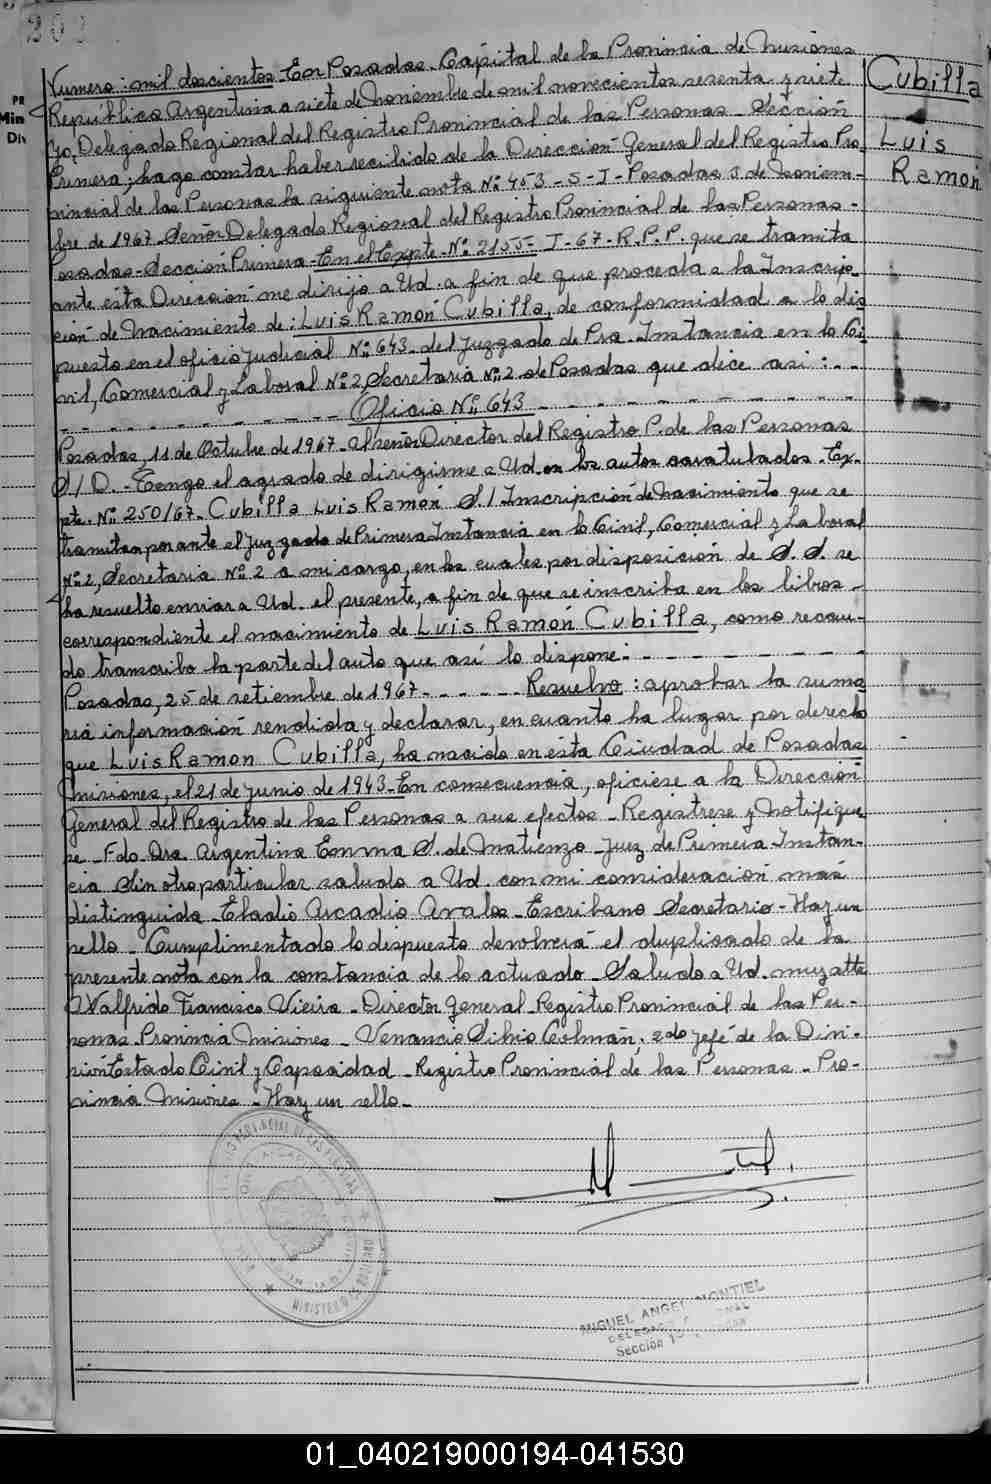 202
Numero: mil doscientos. En Posadas. Capital de la Provincia de Misiones
Cubilla
República Argentina a siete de noviembre de mil novecientos sesenta y siete
Yo, Delegado Regional del Registro Provincial de las Personas - Sección
Luis
Primera; hago constar haber recibido de la Dirección General del Registro Pro
Ramon
vincial de las Personas la siguiente nota Nº: 453 - S - I - Posadas 3 de noviem-
bre de 1967 Señor Delegado Regional del Registro Provincial de las Personas -
osadas - Sección Primera - En el Expte - Nº: 2155 - I - 67 - R. P. P. que se tramita
ante esta Direccion me dirijo a Ud. a fin de que proceda a la Inscrip-
ción de nacimiento de: Luis Ramón Cubilla, de conformidad a lo dis
puesto en el oficio judicial Nº: 643 - del juzgado de Pra. Instancia en lo Ci
vil, Comercial y Laboral Nº: 2, Secretaria Nº: 2 de Posadas que dice asi: - -
Oficio Nº: 643
Posadas, 11 de Octubre de 1967 - Al señor Director del Registro P. de las Personas
S/D. - Tengo el agrado de dirigirme a Ud. en los autos caratulados - Ex-
pte. Nº: 250/67 - Cubilla Luis Ramon S./ Inscripción de nacimiento que se
tramitan por ante el Juzgado de Primera Instancia en lo Civil, Comercial y Laboral
Nº: 2, Secretaria Nº: 2 a mi cargo, en los cuales por disposición de S. S. se
ha resuelto enviar a Ud. el presente, a fin de que se inscriba en los libros -
correspondiente el nacimiento de Luis Ramón Cubilla, como recau-
do transcribo la parte del auto que así lo dispone: - - - - - - - - -
Posadas, 25 de setiembre de 1967 - - - - - Resuelvo: aprobar la suma
ria información rendida y declarar, en cuanto ha lugar por derecho
que Luis Ramon Cubilla, ha nacido en esta Ciudad de Posadas
Misiones, el 21 de junio de 1943 - En consecuencia, ofíciese a la Dirección
General del Registro de las Personas a sus efectos - Registrese y Notifique
se - Fdo. Dra. Argentina Emma S. de Matienzo - Juez de Primera Instan-
cia Sin otro particular saludo a Ud. con mi consideración más
distinguida - Eladio Arcadio Avalos - Escribano Secretario - Hay un
sello - Cumplimentado lo dispuesto devolverá el duplicado de la
presente nota con la constancia de lo actuado - Saludo a Ud. muy atte
Walfrido Francisco Vieira - Director General - Registro Provincial de las Per-
sonas Provincia Misiones - Venancio Silvio Colmán, 2do jefe de la Divi-
sión Estado Civil y Capacidad - Registro Provincial de las Personas - Pro-
vincia Misiones - Hay un sello -
MIGUEL ANGEL MONTIEL
Sección 1ª
01_040219000194-041530